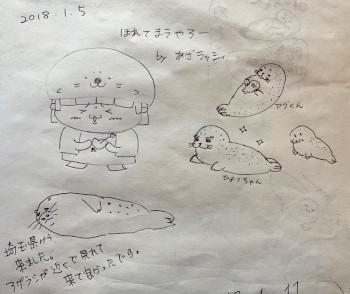 2018.1.5
ほれてまうやろー
by あざラッシィ
アグくん
ひよりちゃん
埼玉県から
来ました。
アザラシが近くで見れて
来て良かったです。